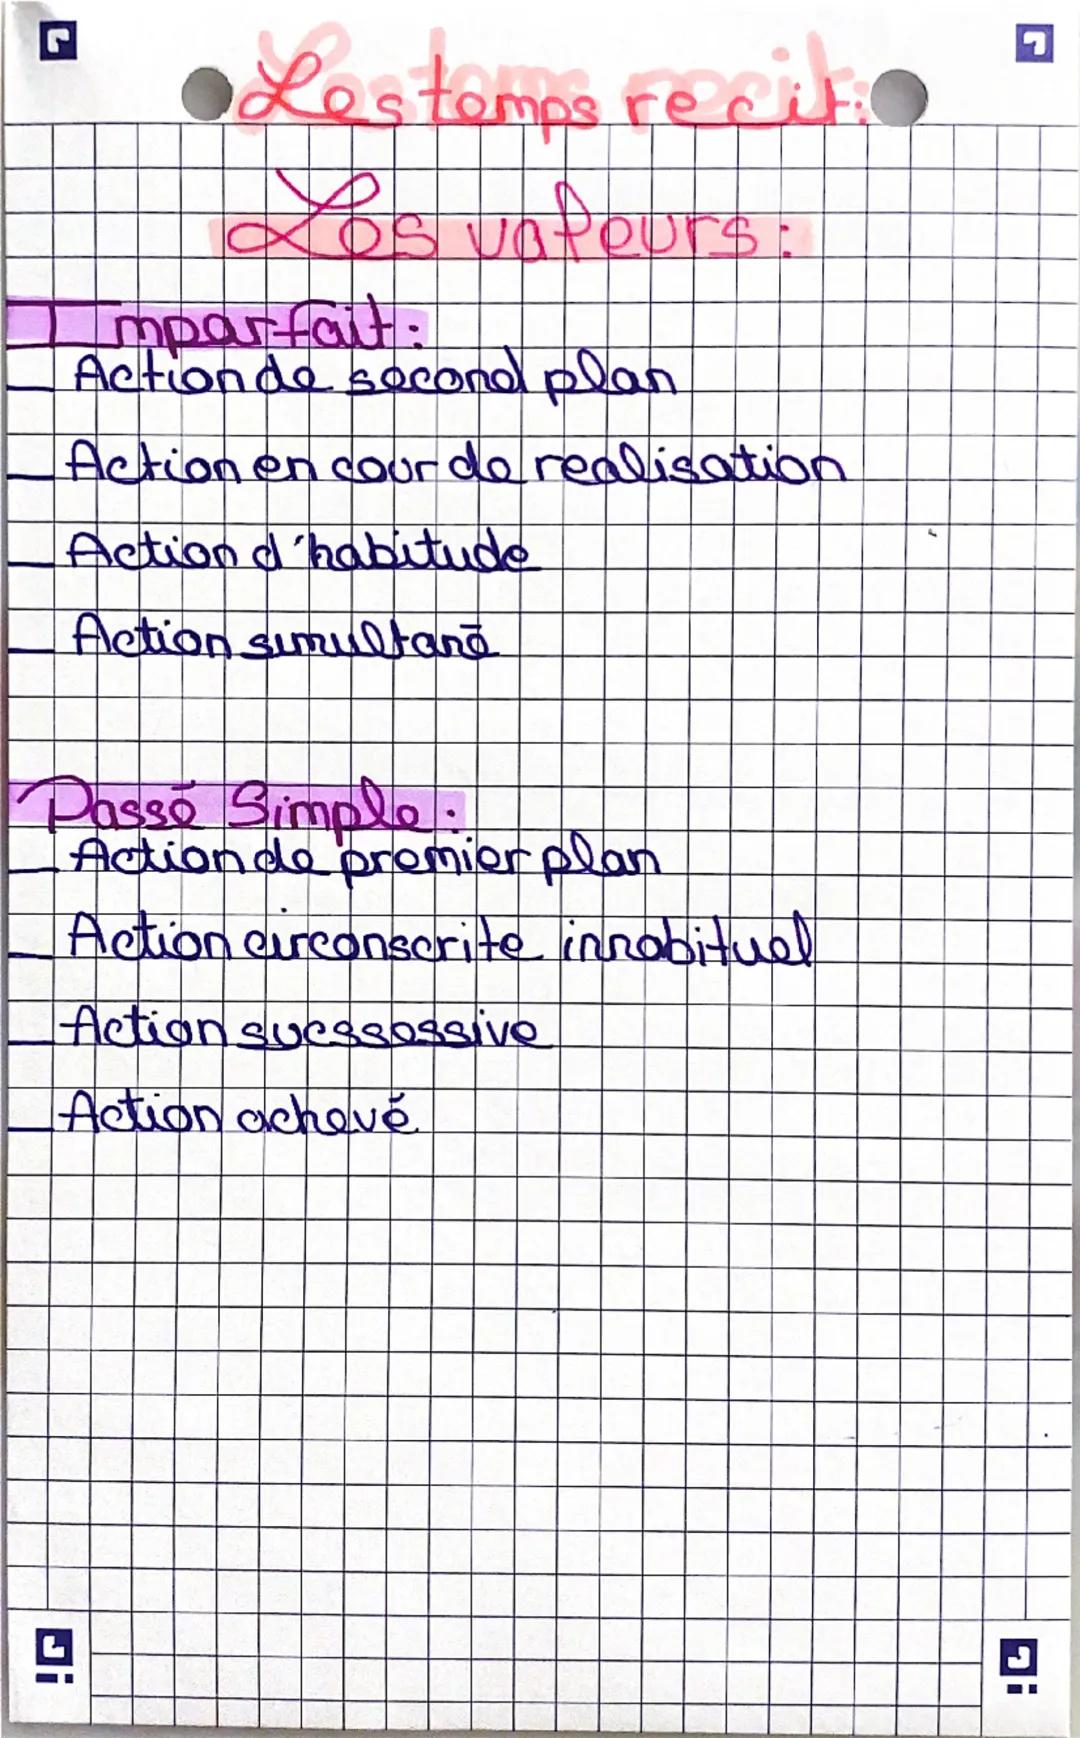 Les temps recit:
Les valeurs:
Imparfait:
_ Action de second plan
_ Action en cour de realisation
_ Action d'habitude
_ Action simultané
Passé Simple:
_ Action de premier plan
_ Action circonscrite innabituel
_ Action sucssessive
_ Action achevé